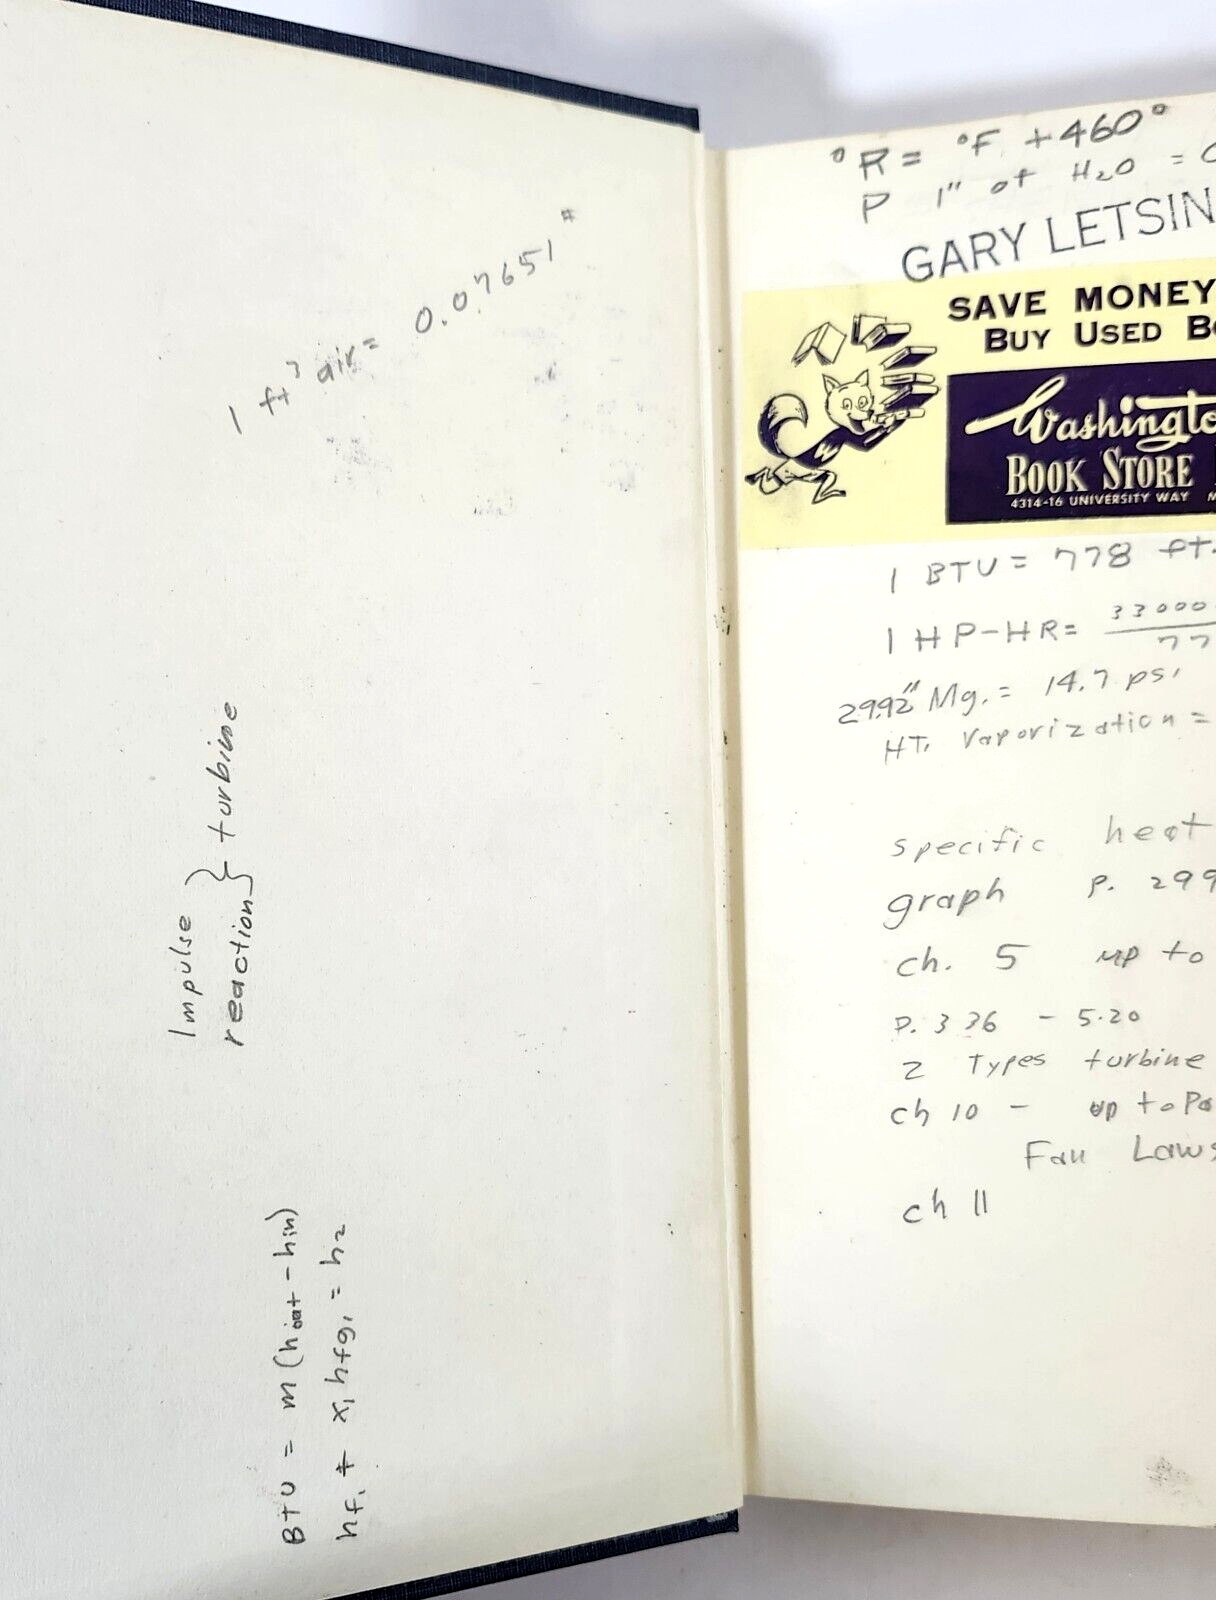 1 ft³ air = 0.07651 #
Impulse
reaction } turbine
BTU = m (hout - hin)
hf1 + x1 hfg1 = h2
°R = °F + 460°
P 1" of H2O =
GARY LETSIN
SAVE MONEY
BUY USED
Washingto
BOOK STORE
4314-16 UNIVERSITY WAY
1 BTU = 778 ft.
1 HP-HR = 33000
77
29.92" Mg. = 14.7 psi
HT. Vaporization =
specific heat
graph P. 299
ch. 5 up to
P. 336 - 5.20
2 Types turbine
ch 10 - up to
Fan Laws
ch 11